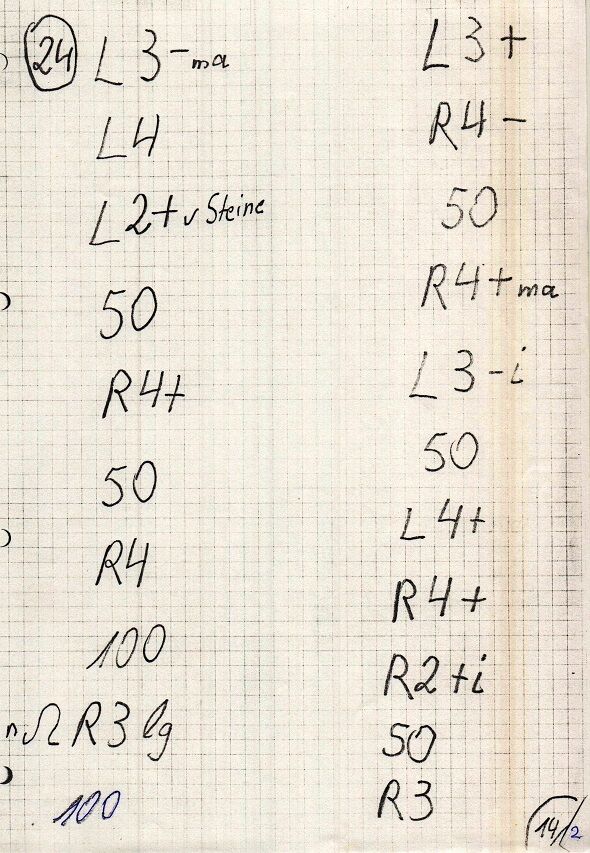 24 L 3- ma
L4
L2+ v Steine
50
R4+
50
R4
100
n Ω R3 lg
100
L3+
R4-
50
R4+ ma
L3-i
50
L4+
R4+
R2+i
50
R3
14/2